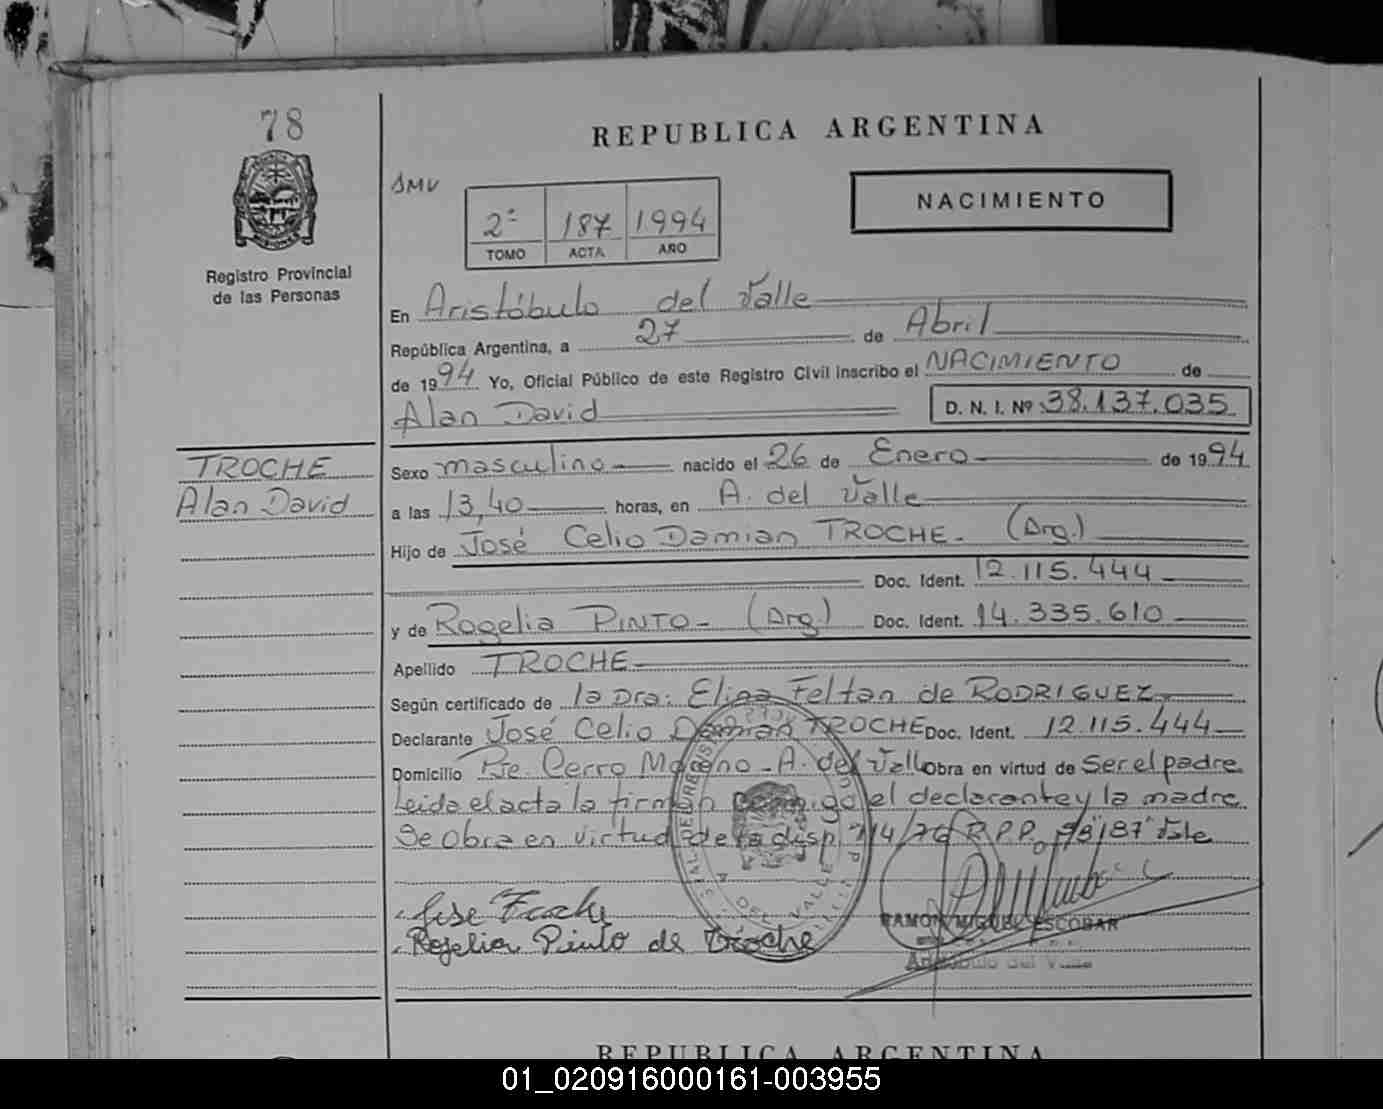 78
REPUBLICA ARGENTINA
SMV
NACIMIENTO
2ª 187 1994
TOMO ACTA AÑO
Registro Provincial
de las Personas
En Aristóbulo del Valle
República Argentina, a 27 de Abril
de 1994 Yo, Oficial Público de este Registro Civil inscribo el NACIMIENTO de
Alan David D. N. I. Nº 38.137.035
TROCHE
Alan David
Sexo masculino nacido el 26 de Enero de 1994
a las 13,40 horas, en A. del Valle
Hijo de José Celio Damian TROCHE. (Arg.)
Doc. Ident. 12.115.444
y de Rogelia PINTO - (Arg.) Doc. Ident. 14.335.610
Apellido TROCHE
Según certificado de la Dra: Elina Feltan de RODRIGUEZ
Declarante José Celio Damian TROCHE Doc. Ident. 12.115.444
Domicilio Pje. Cerro Moreno - A. del Valle Obra en virtud de Ser el padre
Leida el acta la firman conmigo el declarante y la madre
Se Obra en virtud de la disp. 714/76 R.P.P. "93/87" Vale
Jose Troche
Rogelia Pinto de Troche
RAMON MIGUEL ESCOBAR
Aristóbulo del Valle
DEL VALLE
REPUBLICA ARGENTINA
01_020916000161-003955